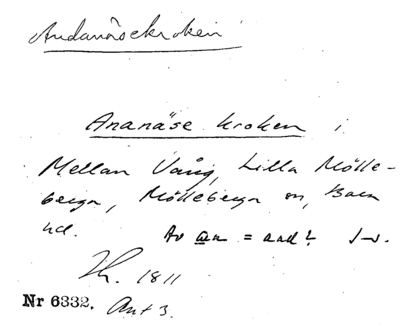 Andanäsekroken
Ananäse kroken i
Mellan Vång, Lilla Mölle-
berga, Mölleberga sn, Bara
hd.
Av an = and?
Th. 1811
Nr 6332. Ant 3.